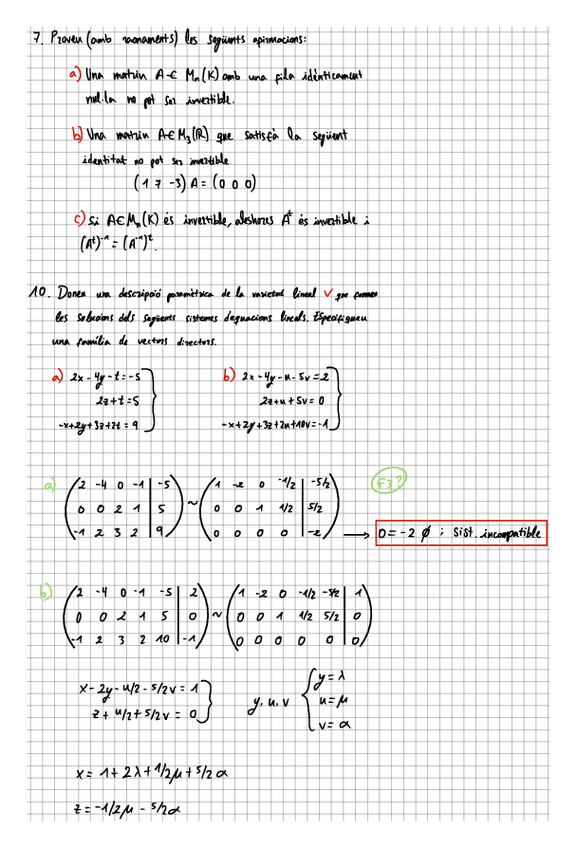 7. Proveu (amb raonaments) les següents afirmacions:
a) Una matriu A ∈ Mn(K) amb una fila idènticament
nul·la no pot ser invertible.
b) Una matriu A ∈ M3(R) que satisfà la següent
identitat no pot ser invertible
(1 7 -3) A = (0 0 0)
c) Si A ∈ Mn(K) és invertible, aleshores Aᵗ és invertible i
(Aᵗ)⁻¹ = (A⁻¹)ᵗ.
10. Doneu una descripció paramètrica de la varietat lineal V que formen
les solucions dels següents sistemes d'equacions lineals. Especifiqueu
una família de vectors directors.
a) 2x - 4y - t = -5 b) 2x - 4y - u - 5v = 2
2z + t = 5 2z + u + 5v = 0
-x + 2y + 3z + 2t = 9 -x + 2y + 3z + 2u + 10v = -1
a) ( 2 -4 0 -1 | -5 ) ~ ( 1 -2 0 -1/2 | -5/2 ) F3?
( 0 0 2 1 | 5 ) ( 0 0 1 1/2 | 5/2 )
( -1 2 3 2 | 9 ) ( 0 0 0 0 | -2 ) → 0 = -2 ∅ ; Sist. incompatible
b) ( 2 -4 0 -1 -5 | 2 ) ~ ( 1 -2 0 -1/2 -5/2 | 1 )
( 0 0 2 1 5 | 0 ) ( 0 0 1 1/2 5/2 | 0 )
( -1 2 3 2 10 | -1 ) ( 0 0 0 0 0 | 0 )
x - 2y - u/2 - 5/2v = 1
z + u/2 + 5/2v = 0
y, u, v
y = λ
u = μ
v = α
x = 1 + 2λ + 1/2μ + 5/2α
z = -1/2μ - 5/2α